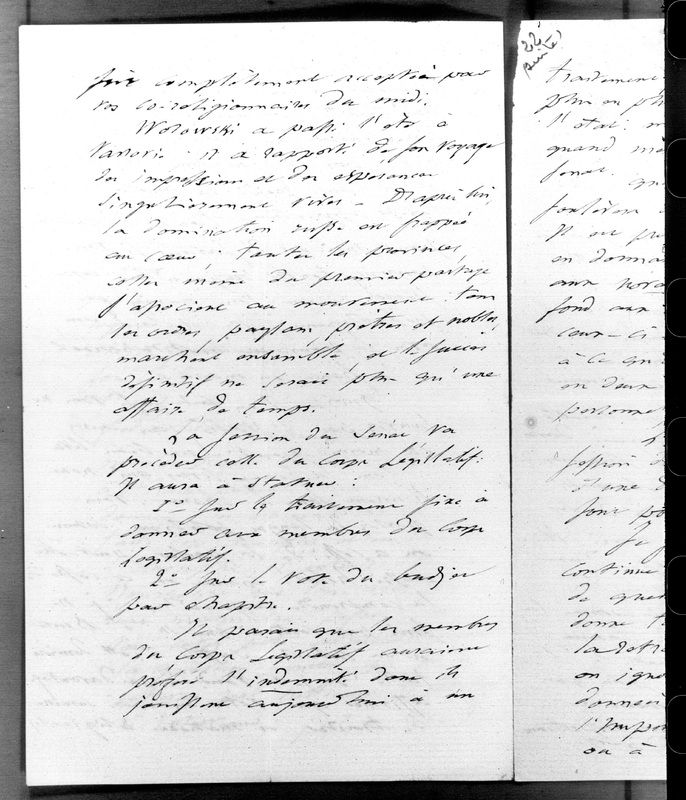 complètement acceptée par
vos co-religionnaires du midi.
Wolowski a passé l'été à
Varsovie. il a rapporté de son voyage
des impressions et des espérances
singulièrement vives. D'après lui,
la domination russe est frappée
au cœur ; toutes les provinces,
celles même du premier partage
s'associent au mouvement : tous
les ordres, paysans, prêtres et nobles,
marchent ensemble, et le succès
définitif ne serait plus qu'une
affaire de temps.
La session du Sénat va
précéder celle du Corps Législatif :
Il aura à statuer :
1° Sur le traitement fixe à
donner aux membres du Corps
Législatif.
2° Sur le vote du budget
par chapitre.
Il paraît que les membres
du Corps Législatif auraient
préféré l'indemnité dont ils
jouissent aujourd'hui à un
22
(suite)
traitement
plus ou pl
l'état :
quand mê
Sénat.
Il est
en donna
aux
fond aux
ceux-ci
à ce qu
ou deux
personnel
session
d'une
Je
continue
de que
donne
la retra
on igno
donnai
l'Impor
ou à